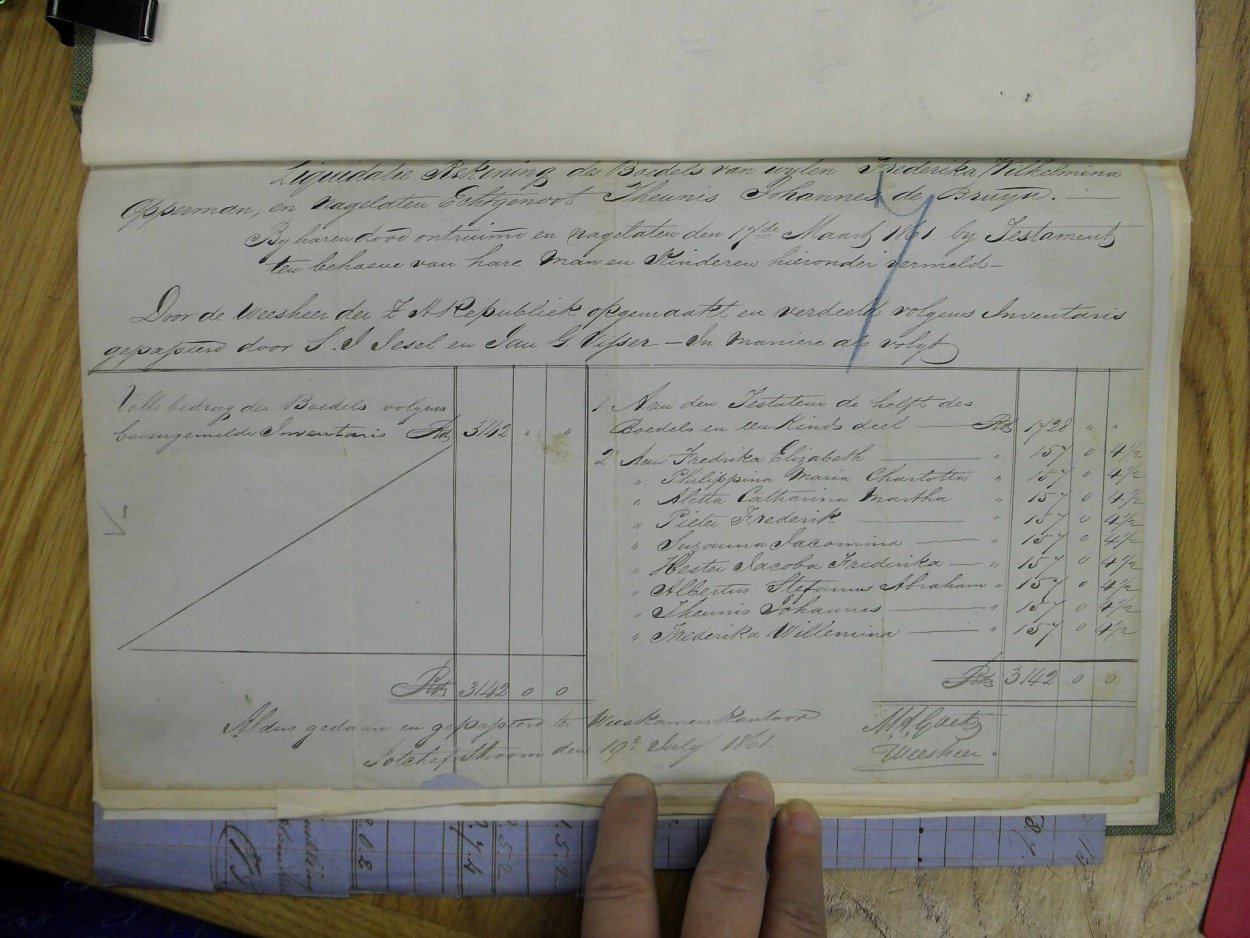 Liquidatie Rekening des Boedels van wylen Frederika Wilhelmina
Opperman, en nagelaten Echtgenoot Theunis Johannes de Bruyn. —
By haren dood ontruimd en nagelaten den 17de Maart 1861 by Testament
ten behoeve van hare Man en Kinderen hieronder vermeld —
Door de Weesheer der Z A Republiek opgemaakt en verdeeld volgens Inventaris
gepasseerd door S. J. Jesel en Jan G Visser — In maniere als volgt
Volle bedrag des Boedels volgens
bovengemelde Inventaris Rds 3142 " "
1 Aan den Testateur de helft des
Boedels en een Kinds deel — Rds 1728 " "
2 Aan Fredrika Elizabeth — " 157 0 4½
" Philippina Maria Charlotta " 157 0 4½
" Aletta Catharina Martha " 157 0 4½
" Pieter Frederik — " 157 0 4½
" Suzanna Jacomina — " 157 0 4½
" Hester Jacoba Frederika — " 157 0 4½
" Albertus Stefanus Abraham " 157 0 4½
" Theunis Johannes — " 157 0 4½
" Frederika Willemina — " 157 0 4½
Rds 3142 0 0
Rds 3142 0 0
Aldus gedaan en gepasseerd ter Weeskamerkantoor
Potchefstroom den 19e July 1861.
M. A. Goetz
Weesheer